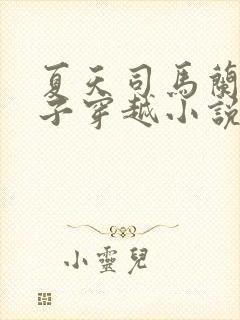 夏天司馬蘭
子穿越小說
小靈兒